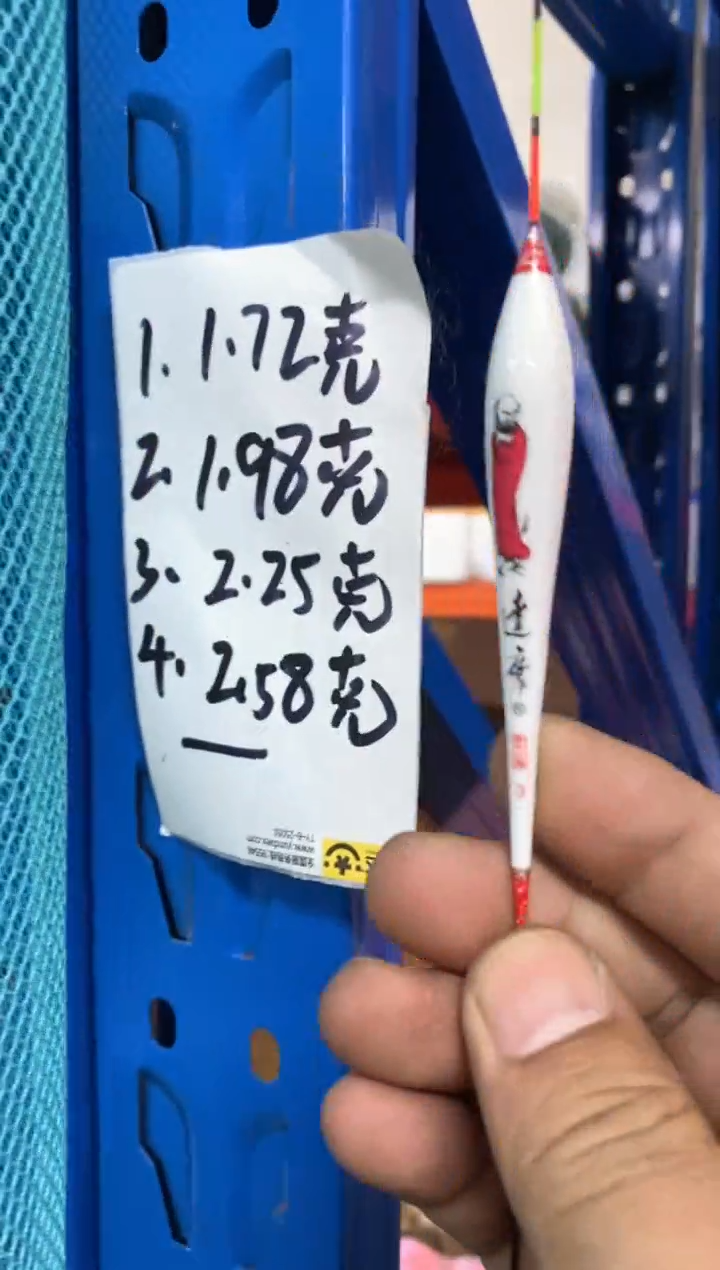 1. 1.72克
2. 1.98克
3. 2.25克
4. 2.58克
达摩